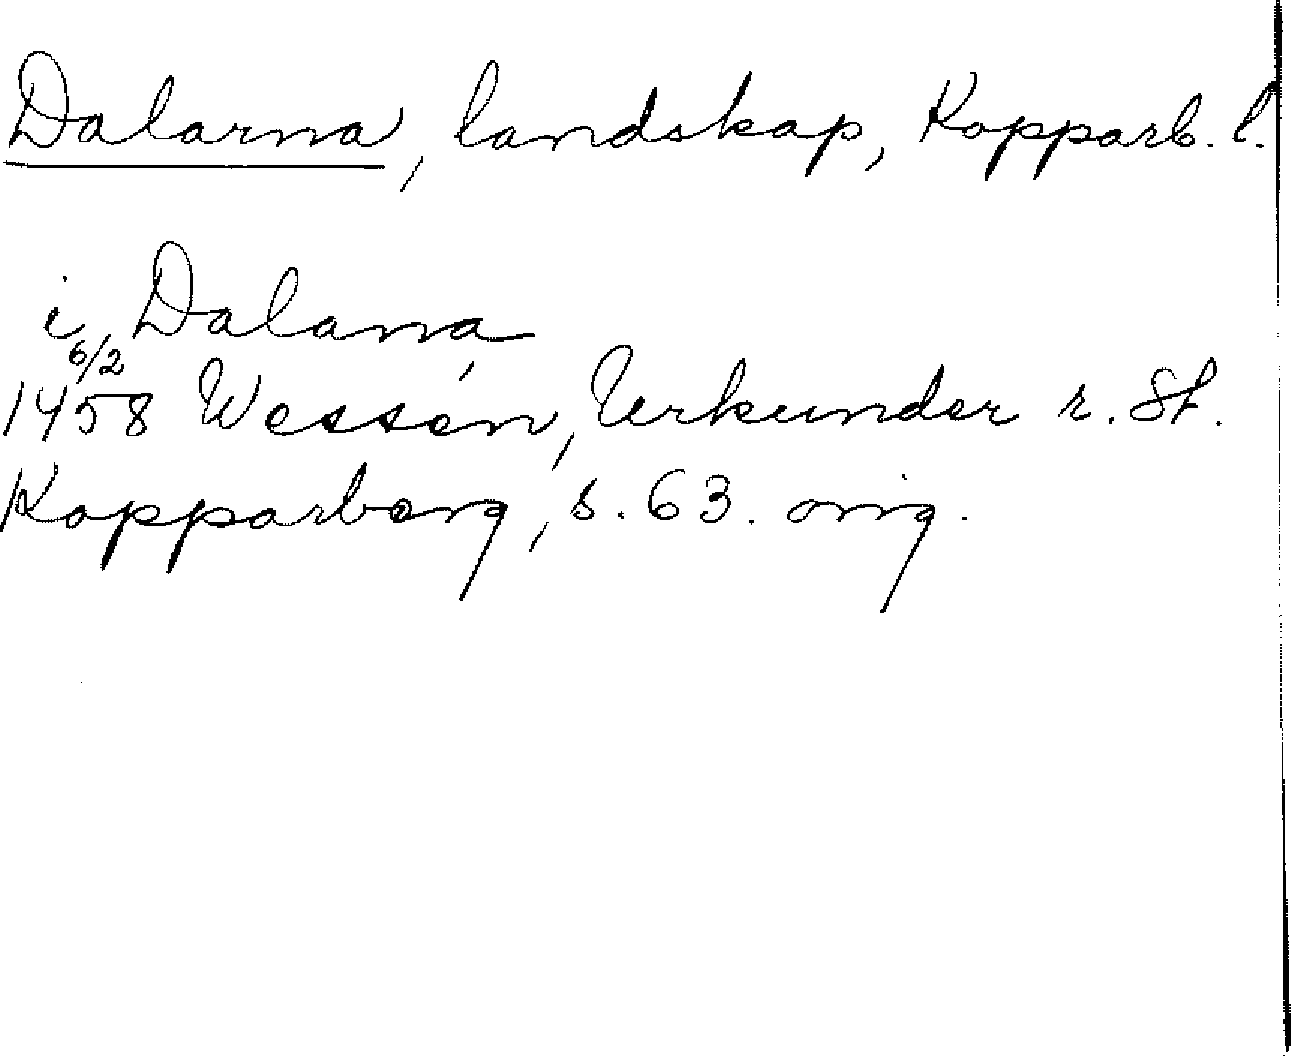 Dalarna, landskap, Kopparb. l.
i Dalana
6/2
1458 Wessén, Urkunder r. St.
Kopparberg, s. 63. orig.